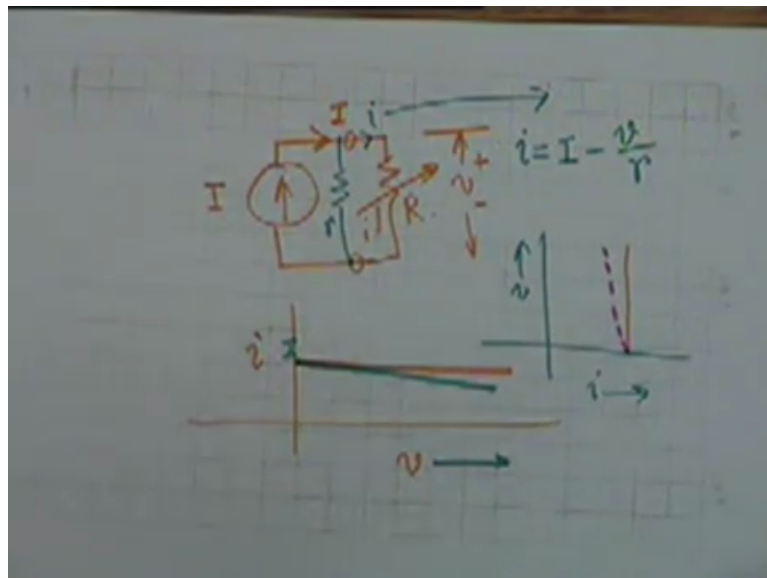 I i
I r i R v + -
i = I - v/r
v
i
I
i
v